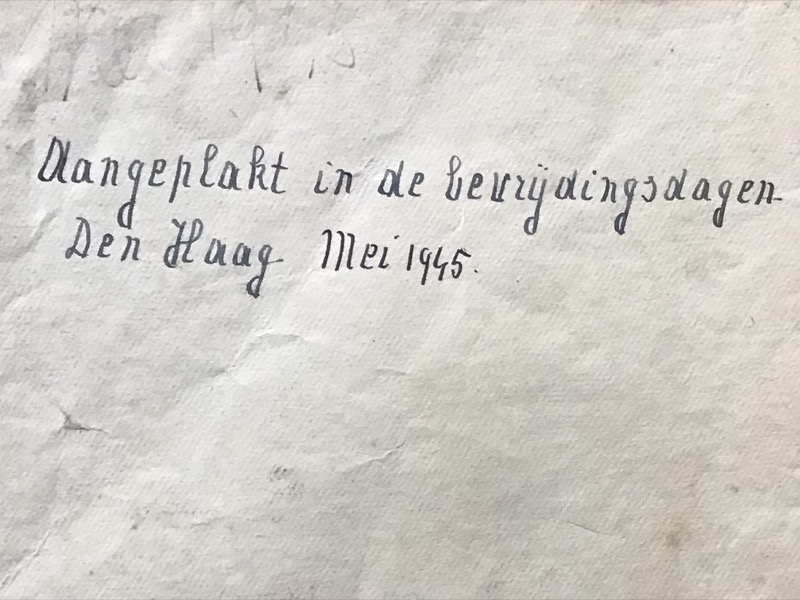 Aangeplakt in de bevrijdingsdagen
Den Haag Mei 1945.